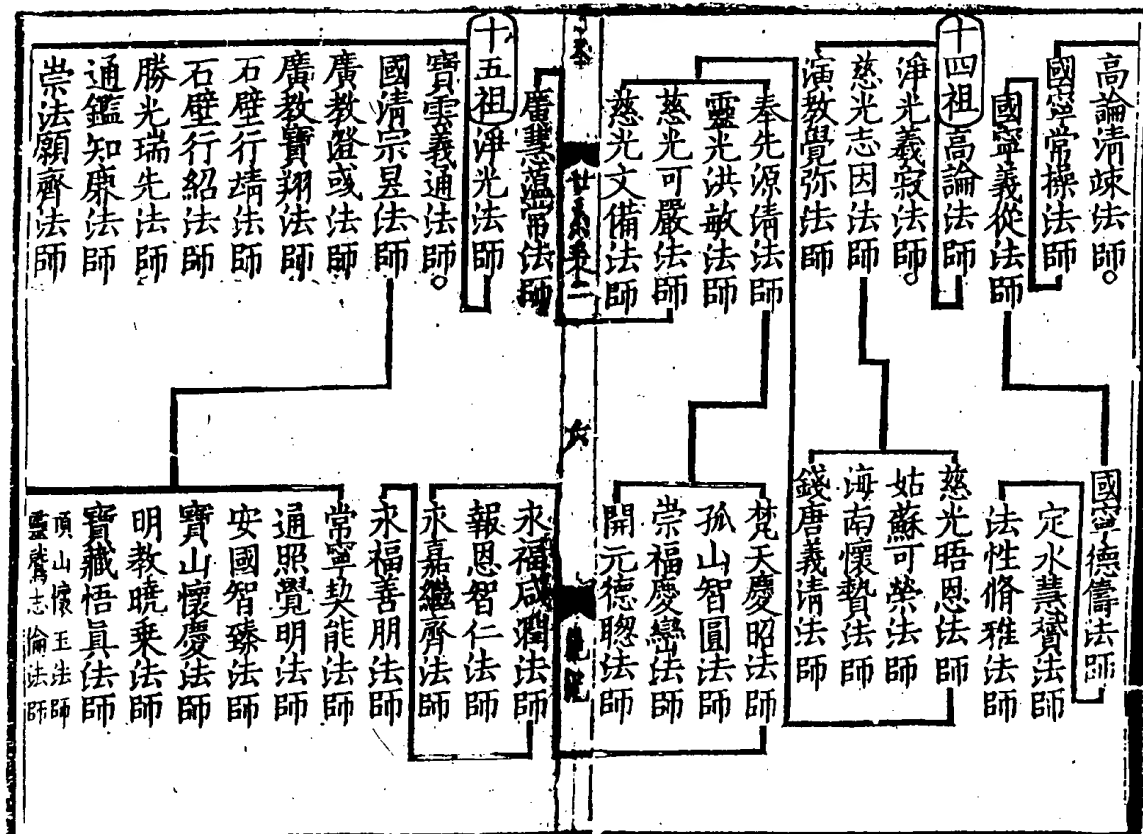 高論清竦法師。
國寧常操法師
國寧義從法師
十四祖高論法師
淨光義寂法師。
慈光志因法師
演教覺弥法師
奉先源清法師
靈光洪敏法師
慈光可嚴法師
慈光文備法師
國寧德儔法師
定水慧贇法師
法性脩雅法師
慈光晤恩法師
姑蘇可榮法師
海南懷贄法師
錢唐義清法師
梵天慶昭法師
孤山智圓法師
崇福慶巒法師
開元德聦法師
廣慧蘊常法師
十五祖淨光法師
寶雲義通法師。
國清宗昱法師
廣教澄彧法師
廣教寶翔法師
石壁行靖法師
石壁行紹法師
勝光瑞先法師
通鑑知廉法師
崇法願齊法師
永福咸潤法師
報恩智仁法師
永嘉繼齊法師
永福善朋法師
常寧契能法師
通照覺明法師
安國智臻法師
寶山懷慶法師
明教曉乘法師
寶藏悟真法師
頂山懷玉法師
靈鷲志倫法師